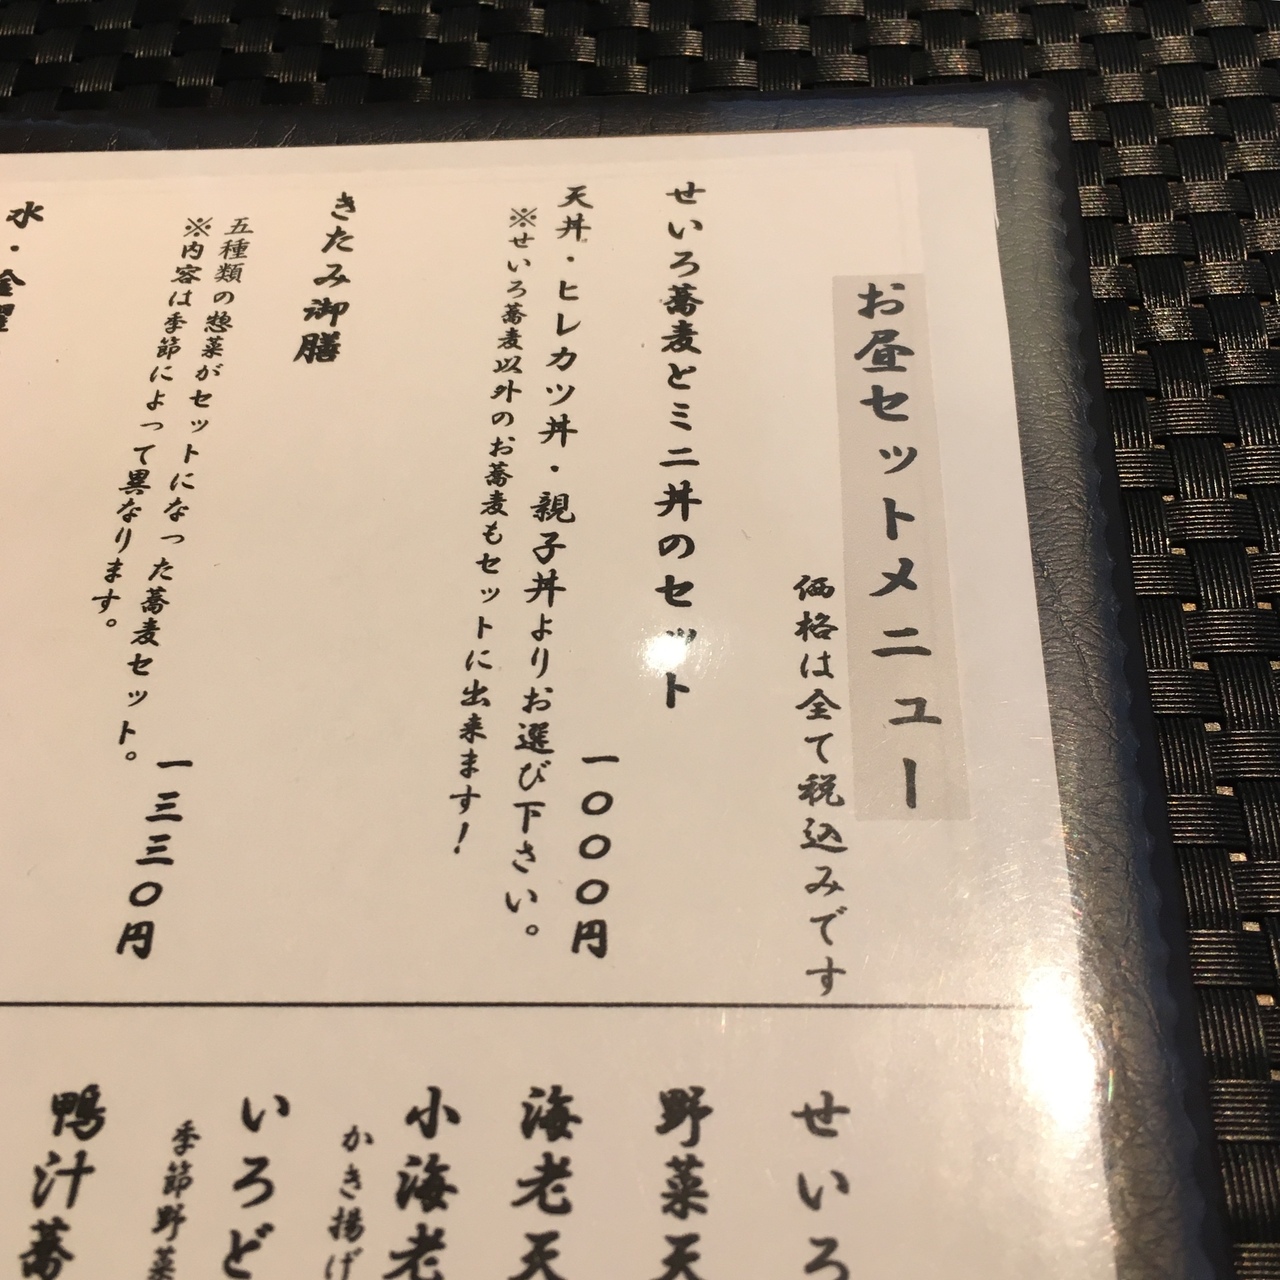 お昼セットメニュー
価格は全て税込みです
せいろ蕎麦とミニ丼のセット
一〇〇〇円
天丼・ヒレカツ丼・親子丼よりお選び下さい。
※せいろ蕎麦以外のお蕎麦もセットに出来ます！
きたみ御膳
一三三〇円
五種類の惣菜がセットになった蕎麦セット。
※内容は季節によって異なります。
水・金曜
せいろ
野菜天
海老天
小海老
かき揚げ
いろど
季節野菜
鴨汁蕎